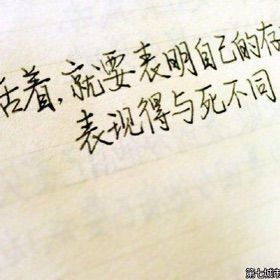 活着,就要表明自己的存
表现得与死不同
第七城市